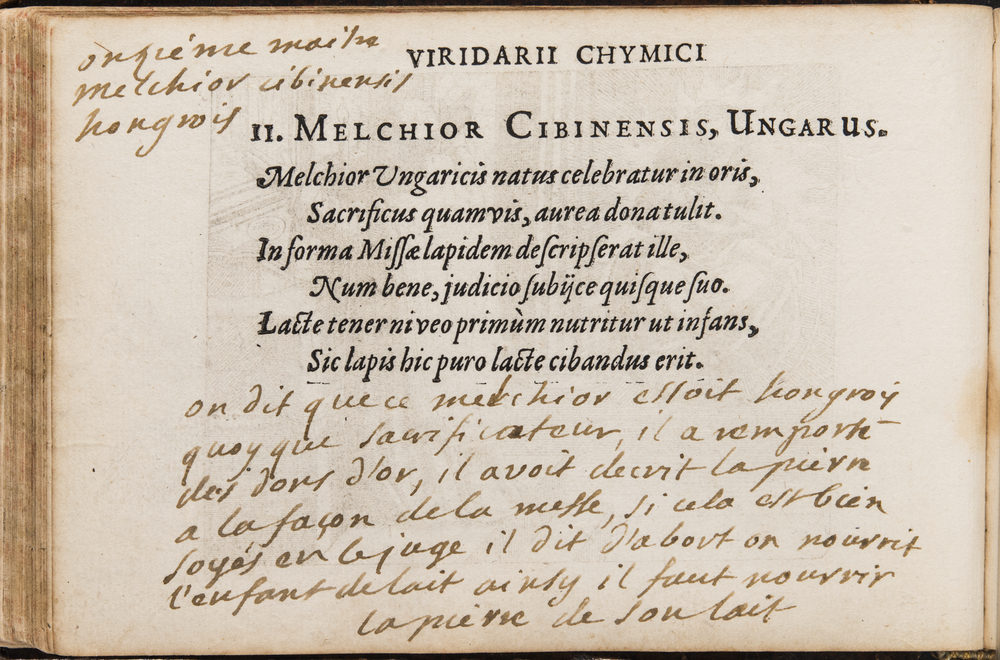 onziéme maitre
melchior cibinensis
hongrois
VIRIDARII CHYMICI
II. MELCHIOR CIBINENSIS, UNGARUS.
Melchior Ungaricis natus celebratur in oris,
Sacrificus quamvis, aurea dona tulit.
In forma Miſſæ lapidem deſcripſerat ille,
Num bene, judicio ſubijce quiſque ſuo.
Lacte tener niveo primùm nutritur ut infans,
Sic lapis hic puro lacte cibandus erit.
on dit que ce melchior estoit hongrois
quoy que sacrificateur, il a remporté
des dons d'or, il avoit decrit la pierre
a la façon de la messe, si cela est bien
soyés en le juge il dit d'abort on nourrit
l'enfant de lait ainsy il faut nourrir
la pierre de son lait